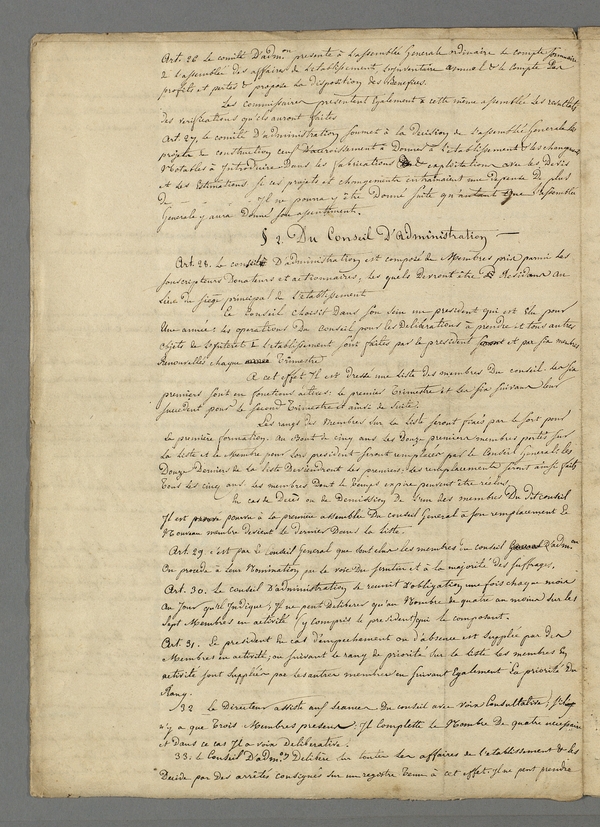 Art. 26 le comité D'adm.on presente à l'assemblée Generale ordinaire le compte sommaire
à l'assemblée des affaires de l'Etablissement, l'inventaire annuel & le Compte des
profits et pertes & propose la disposition des Benefices.
Les Commissaires presentent Egalement à cette même assemblée les resultats
des verifications qu'ils auront faites
Art. 27. le comité D'administration soumet à la Decision de l'assemblée Generale les
projets de construction ceux d'accroissement à Donner à l'Etablissement & les changemens
Notables à Introduire Dans les fabrications & exploitations avec les Devis
et les Estimations si ces projets et changements entrainaient une depense de plus
de Il ne pourra y être Donné suite qu'autant que l'assemblée
Generale y aura Donné son assentiment.
§ 2. Du Conseil D'Administration
Art. 28. le conseil D'administration est composé de Membres pris parmi les
souscripteurs Donateurs et actionnaires, les quels Devront être Residans au
lieu du siege principal de l'Etablissement
Ce Conseil choisit Dans son sein un president qui est Elu pour
Une année: les operations du conseil pour les Deliberations à prendre et tous autres
objets de l'Etablissement sont faites par le president et par six membres
Renouvellés chaque Trimestre
A cet effet Il est dressé une Liste des membres Du conseil: les six
premiers sont en fonctions actives le premier Trimestre et les six suivans leur
succedent pour le second Trimestre et ainsi de suite.
Les rangs des Membres sur la Liste seront fixés par le sort pour
la première formation. Au Bout de cinq ans les Douze premiers membres portés sur
la Liste et le Membre pour lors president seront remplacés par le Conseil General: les
Douze Derniers de la liste Deviendront les premiers; les remplacements seront ainsi faits
Tous les cinq ans les membres Dont le temps expire peuvent être réélus
En cas de Decès ou de Demission de l'un des membres Du dit conseil
Il est pourvu à la première assemblée Du conseil General à son remplacement Le
Nouveau membre devient le dernier Dans la liste.
Art. 29. c'est par le conseil General que sont élus les membres du conseil D'adm.on
On procède à leur Nomination par la voie Du scrutin et à la majorité des suffrages.
Art. 30. Le conseil D'administration se reunit D'obligation une fois chaque mois
au Jour qu'il Indique; Il ne peut Deliberer qu'au Nombre de quatre au moins sur les
sept Membres en activité (y compris le president) qui le composent.
Art. 31. Le president en cas d'empechement ou d'absence est suppléé par des
Membres en activité, en suivant le rang de priorité sur la liste les membres en
activité sont Suppléés par les autres membres en suivant Egalement la priorité Du
Rang.
32 Le Directeur assiste aux seances Du conseil avec voix Consultative;
n'y a que Trois Membres presens, Il complette le Nombre De quatre nécessaire
et dans ce cas Il a voix Deliberative.
33. le Conseil D'adm.on Delibère sur toutes les affaires de l'Etablissement & les
Decide par des arrêtés consignés sur un registre tenu à cet effet. Il ne peut prendre